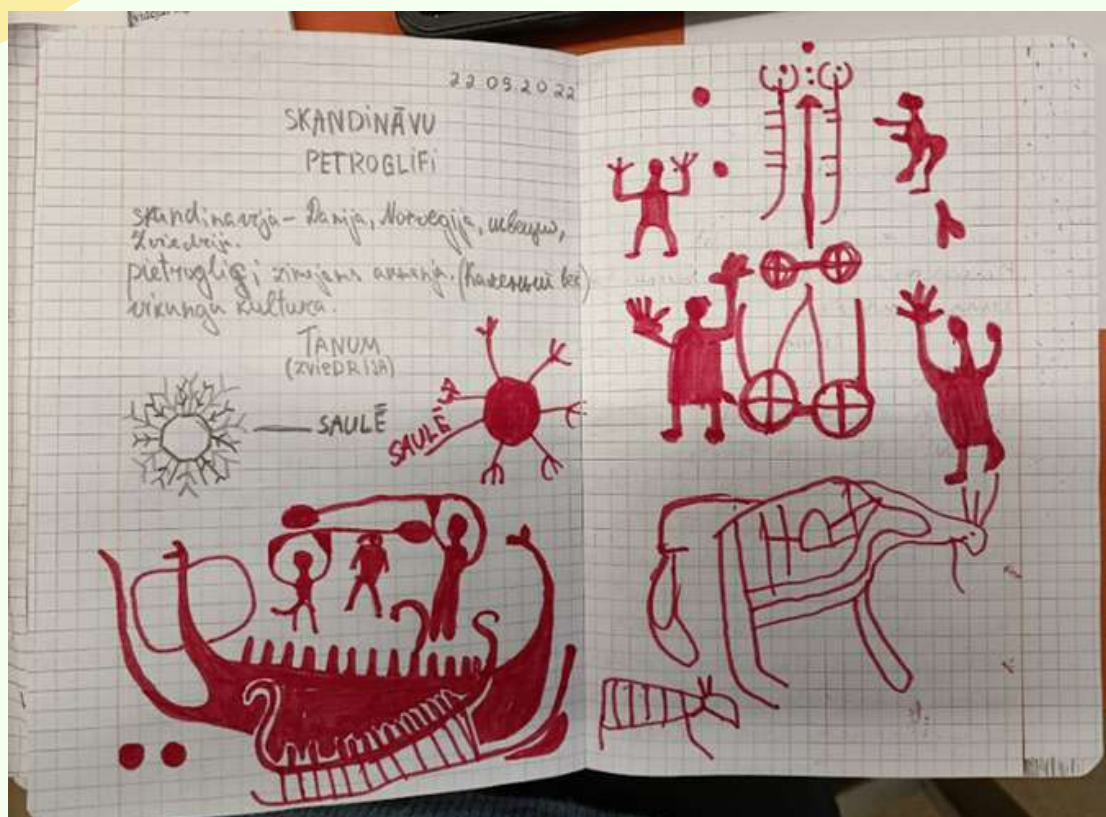 22 09 2022
SKANDINĀVU
PETROGLIFI
skandinavija - Danija, Norvegija, швеция,
Zviedrija.
pietroglifi zimejums akmenja. (каменный век)
vikungu kultura.
TANUM
(ZVIEDRIJA)
SAULĒ
SAULĒ